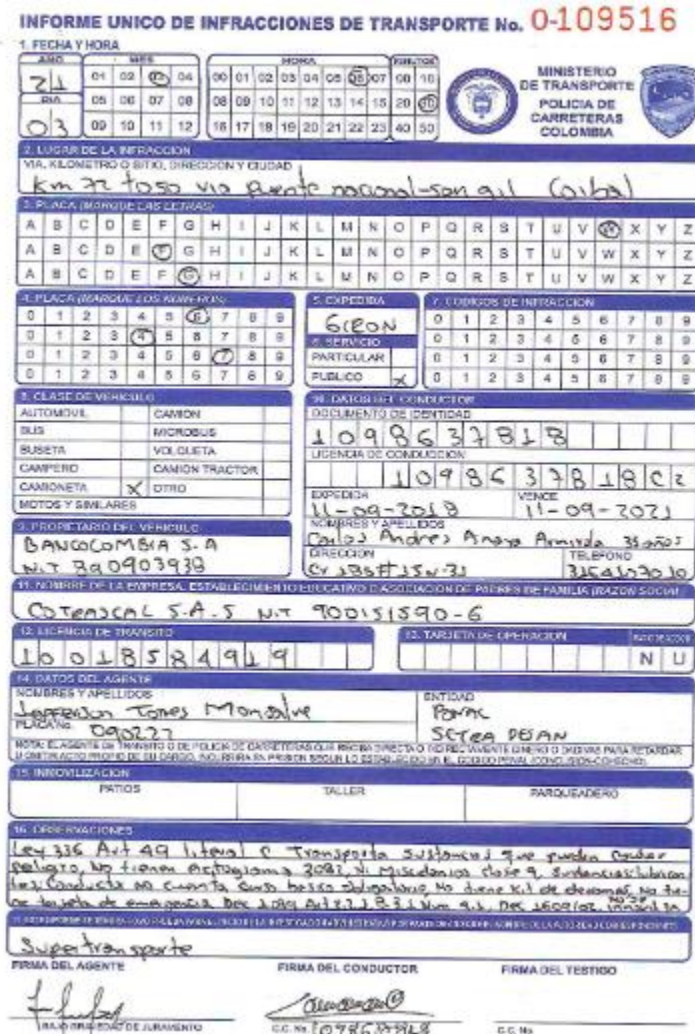 INFORME UNICO DE INFRACCIONES DE TRANSPORTE No. 0-109516
1. FECHA Y HORA
AÑO MES HORA MINUTOS
21 01 02 03 04 00 01 02 03 04 05 06 07 00 10
DIA 05 06 07 08 08 09 10 11 12 13 14 15 20 30
03 09 10 11 12 16 17 18 19 20 21 22 23 40 50
MINISTERIO
DE TRANSPORTE
POLICIA DE
CARRETERAS
COLOMBIA
2. LUGAR DE LA INFRACCION
VIA, KILOMETRO O SITIO, DIRECCION Y CIUDAD
Km 72 +050 via Puente nacional-san gil
3. PLACA (MARQUE LAS LETRAS)
A B C D E F G H I J K L M N O P Q R S T U V W X Y Z
A B C D E F G H I J K L M N O P Q R S T U V W X Y Z
A B C D E F G H I J K L M N O P Q R S T U V W X Y Z
4. PLACA (MARQUE LOS NUMEROS)
0 1 2 3 4 5 6 7 8 9
0 1 2 3 4 5 6 7 8 9
0 1 2 3 4 5 6 7 8 9
0 1 2 3 4 5 6 7 8 9
5. EXPEDIDA
GIRON
6. SERVICIO
PARTICULAR
PUBLICO X
7. CODIGOS DE INFRACCION
0 1 2 3 4 5 6 7 8 9
0 1 2 3 4 5 6 7 8 9
0 1 2 3 4 5 6 7 8 9
0 1 2 3 4 5 6 7 8 9
8. CLASE DE VEHICULO
AUTOMOVIL CAMION
BUS MICROBUS
BUSETA VOLQUETA
CAMPERO CAMION TRACTOR
CAMIONETA X OTRO
MOTOS Y SIMILARES
9. PROPIETARIO DEL VEHICULO
BANCOLOMBIA S.A
N.T 890903938
10. DATOS DEL CONDUCTOR
DOCUMENTO DE IDENTIDAD
1098637818
LICENCIA DE CONDUCCION
1098637818 C2
EXPEDIDA VENCE
11-09-2018 11-09-2021
NOMBRES Y APELLIDOS
Carlos Andres Anaya 35 años
DIRECCION TELEFONO
11. NOMBRE DE LA EMPRESA, ESTABLECIMIENTO EDUCATIVO O ASOCIACION DE PADRES DE FAMILIA (RAZON SOCIAL
COTRASCAL S.A.S N.T 900151590-6
12. LICENCIA DE TRANSITO
10018584919
13. TARJETA DE OPERACION
N U
14. DATOS DEL AGENTE
NOMBRES Y APELLIDOS ENTIDAD
Jefferson Torres Monsalve Ponac
PLACA No. 090227 SETRA DESAN
NOTA: EL AGENTE DE TRANSITO O DE POLICIA DE CARRETERAS QUE RECIBA DIRECTA O INDIRECTAMENTE DINERO O DADIVAS PARA RETARDAR
U OMITIR ACTO PROPIO DE SU CARGO, INCURRIRA EN PRISION SEGUN LO ESTABLECIDO EN EL CODIGO PENAL (CONCUSION-COHECHO).
15. INMOVILIZACION
PATIOS TALLER PARQUEADERO
16. OBSERVACIONES
Ley 336 Art 49 literal C Transporta sustancias que pueden causar
peligro, No tienen 3082, clase 9,
Conducta no cuenta curso basico obligatorio, No tiene kit de derrames, No tie-
ne tarjeta de emergencia Dec 1079
Supertransporte
FIRMA DEL AGENTE FIRMA DEL CONDUCTOR FIRMA DEL TESTIGO
BAJO GRAVEDAD DE JURAMENTO C.C. No. 1098637818 C.C. No.